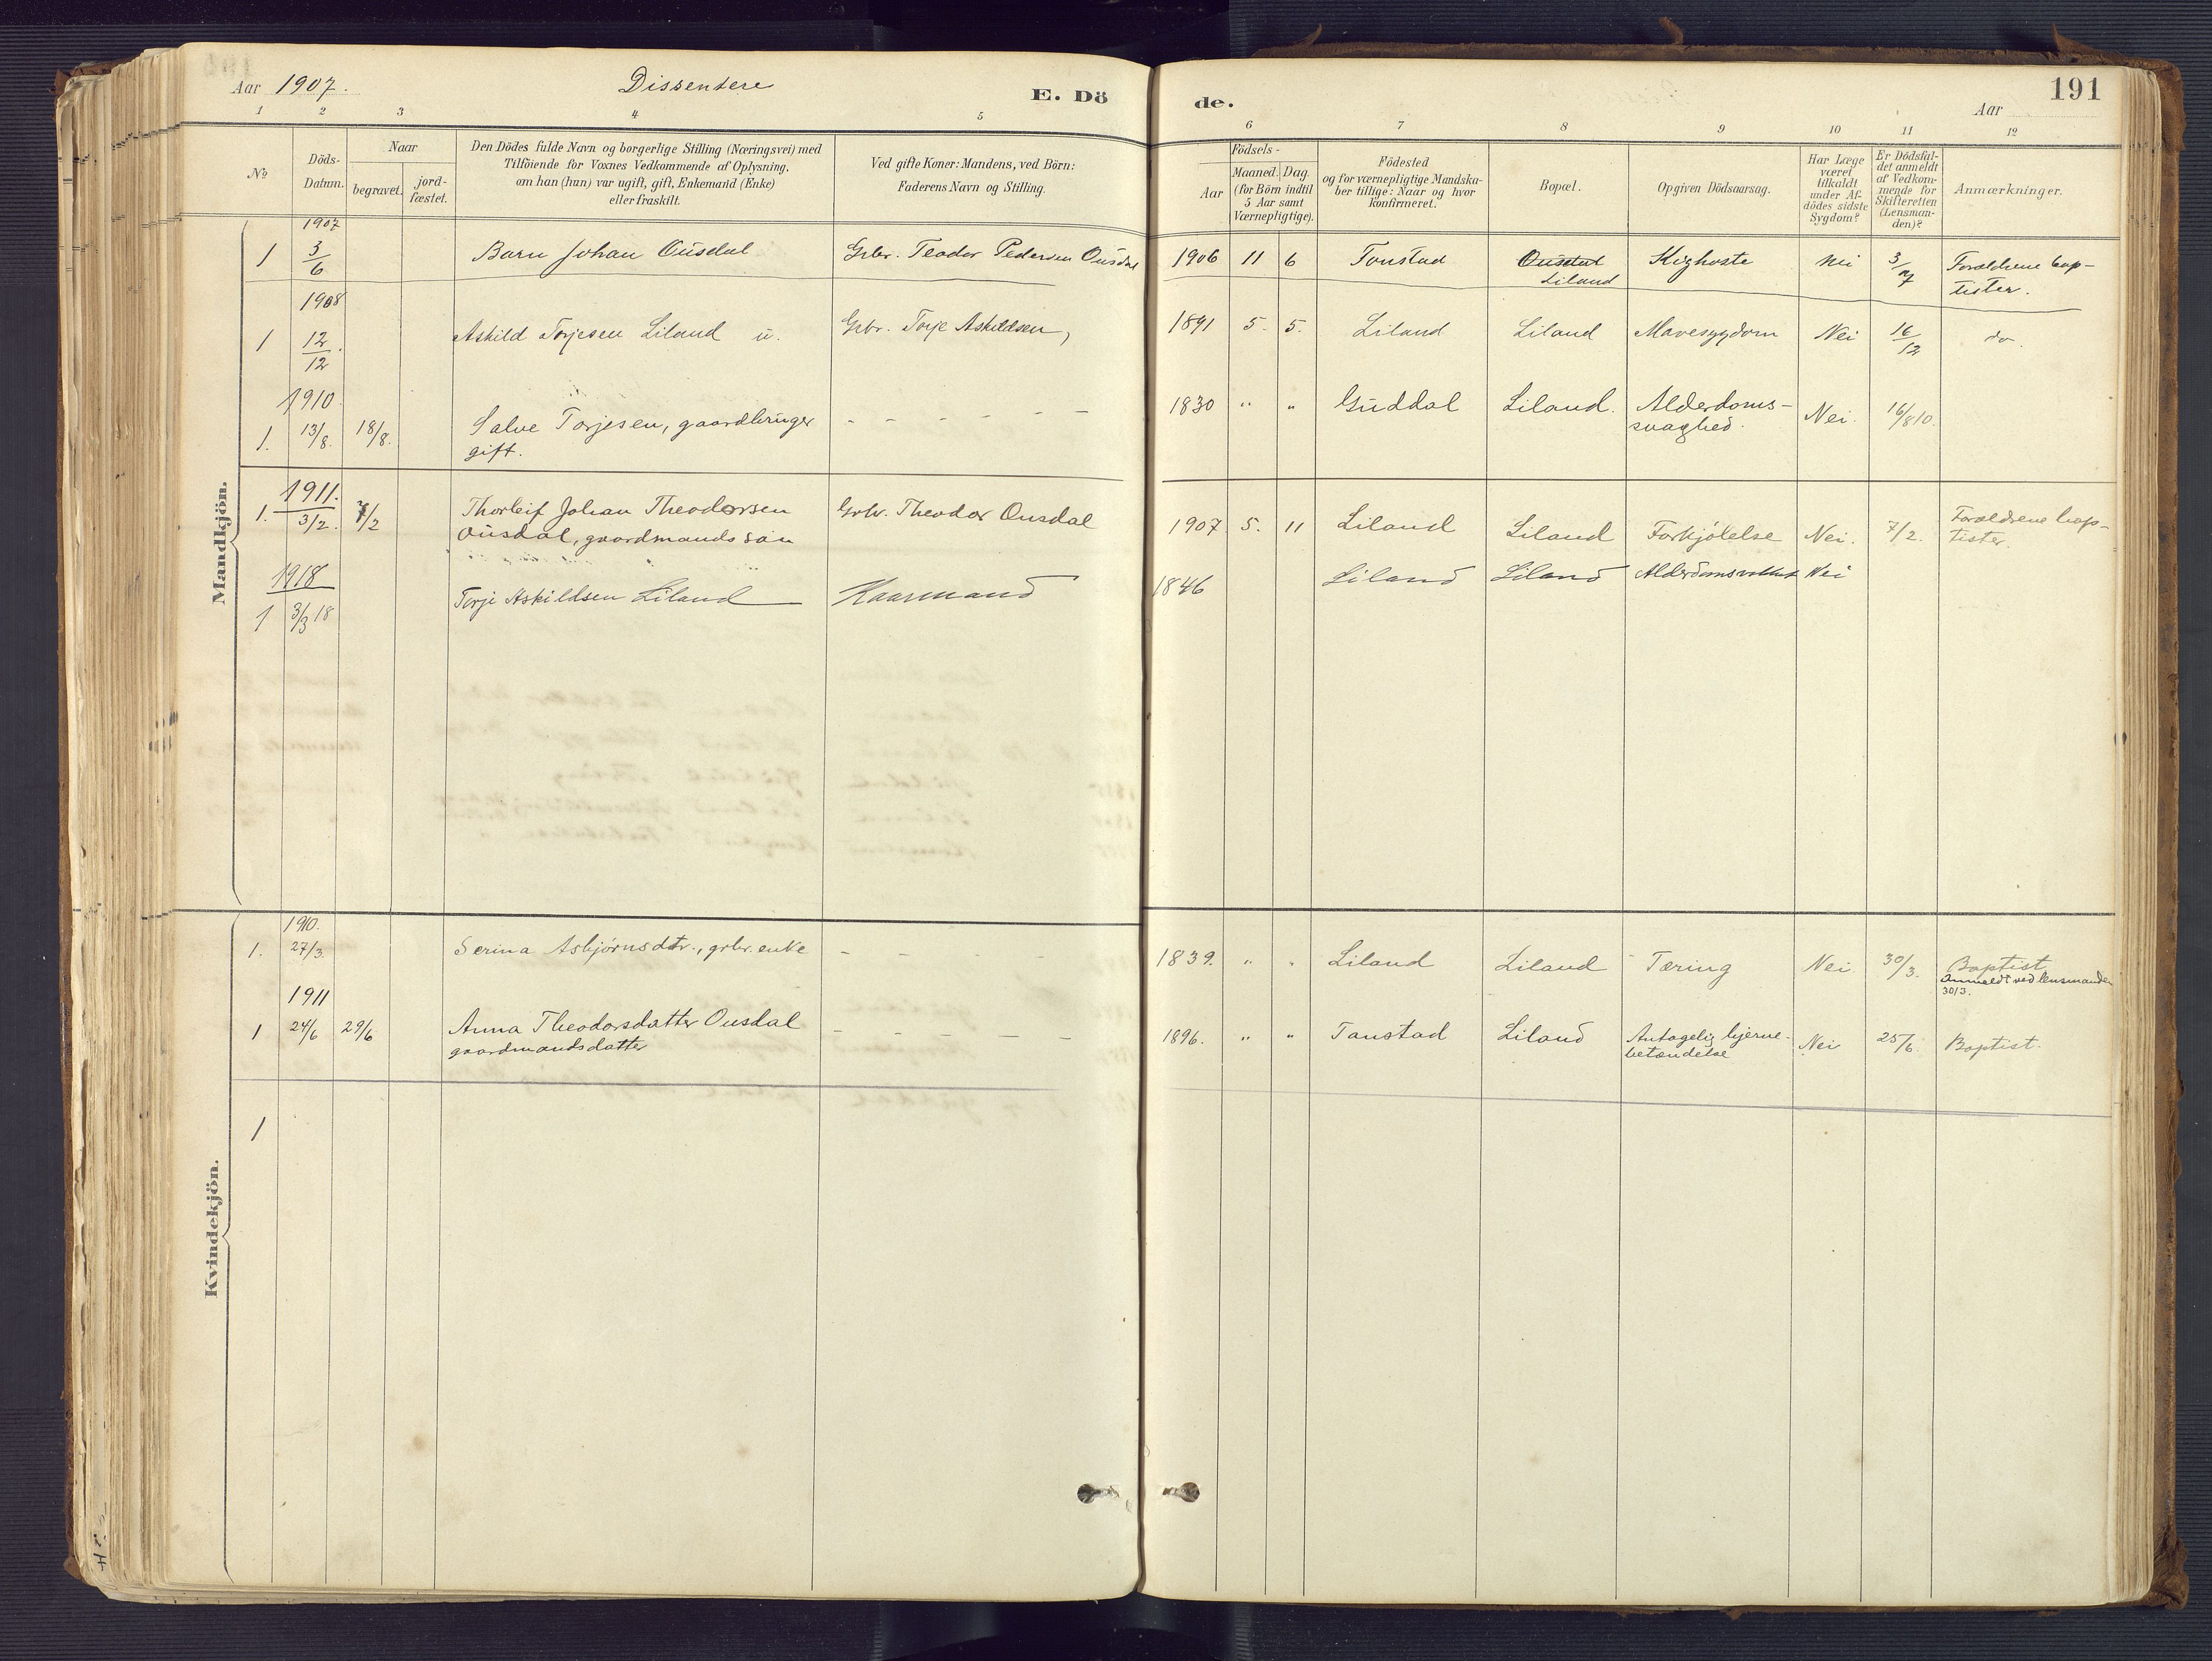 Aar 1907.
Dissentere
E. Dö
de.
Aar
191
1 2 3 4 5
6 7 8 9 10 11 12
№
Döds-
Datum.
Naar
begravet.
jord-
fæstet.
Den Dödes fulde Navn og borgerlige Stilling (Næringsvei) med
Tilföiende for Voxnes Vedkommende af Oplysning,
om han (hun) var ugift, gift, Enkemand (Enke)
eller fraskilt.
Ved gifte Koner: Mandens, ved Börn:
Faderens Navn og Stilling.
Födsels-
Aar
Maaned. Dag.
(for Börn indtil
5 Aar samt
Værnepligtige).
Födested
og for værnepligtige Mandska-
ber tillige: Naar og hvor
konfirmeret.
Bopæl.
Opgiven Dödsaarsag.
Har Læge
været
tilkaldt
under Af-
dödes sidste
Sygdom?
Er Dödsfal-
det anmeldt
af Vedkom-
mende for
Skifteretten
(Lensman-
den)?
Anmærkninger.
Mandkjön.
1907
1 3/6 Barn Johan Ousdal Grbr. Teodor Pedersen Ousdal 1906 11 6 Tonstad Ousdal Kighoste Nei 3/7 Forældrene bap-
Liland tister.
1908
1 12/12. Askild Torjesen Liland u. Grbr. Torje Askildsen, 1891 5. 5. Liland Liland Mavesygdom Nei 16/12 do.
1910.
1. 13/8. 18/8. Salve Torjesen, gaardbruger - - - - - 1830 " " Guddal Liland. Alderdoms- Nei. 16/8 10.
gift. svaghed.
1911.
1. 3/2. 7/2 Thorleif Johan Theodorsen Grbr. Theodor Ousdal 1907 5. 11 Liland Liland Forkjølelse Nei. 7/2. Forældrene bap-
Ousdal, gaardmands søn tister.
1918
1 3/3 18 Torje Askildsen Liland Kaarmand 1846 Liland Liland Nei
Kvindekjön.
1910.
1. 27/3. Serina Asbjørnsdtr., grbr. enke - - - - 1839. " " Liland Liland Tæring Nei. 30/3. Baptist
Anmeldt ved lensmanden
30/3.
1911
1 24/6 29/6 Anna Theodorsdatter Ousdal - - - - - 1896. " " Tonstad Liland Antagelig hjerne- Nei 25/6. Baptist.
gaardmandsdatter betændelse
1